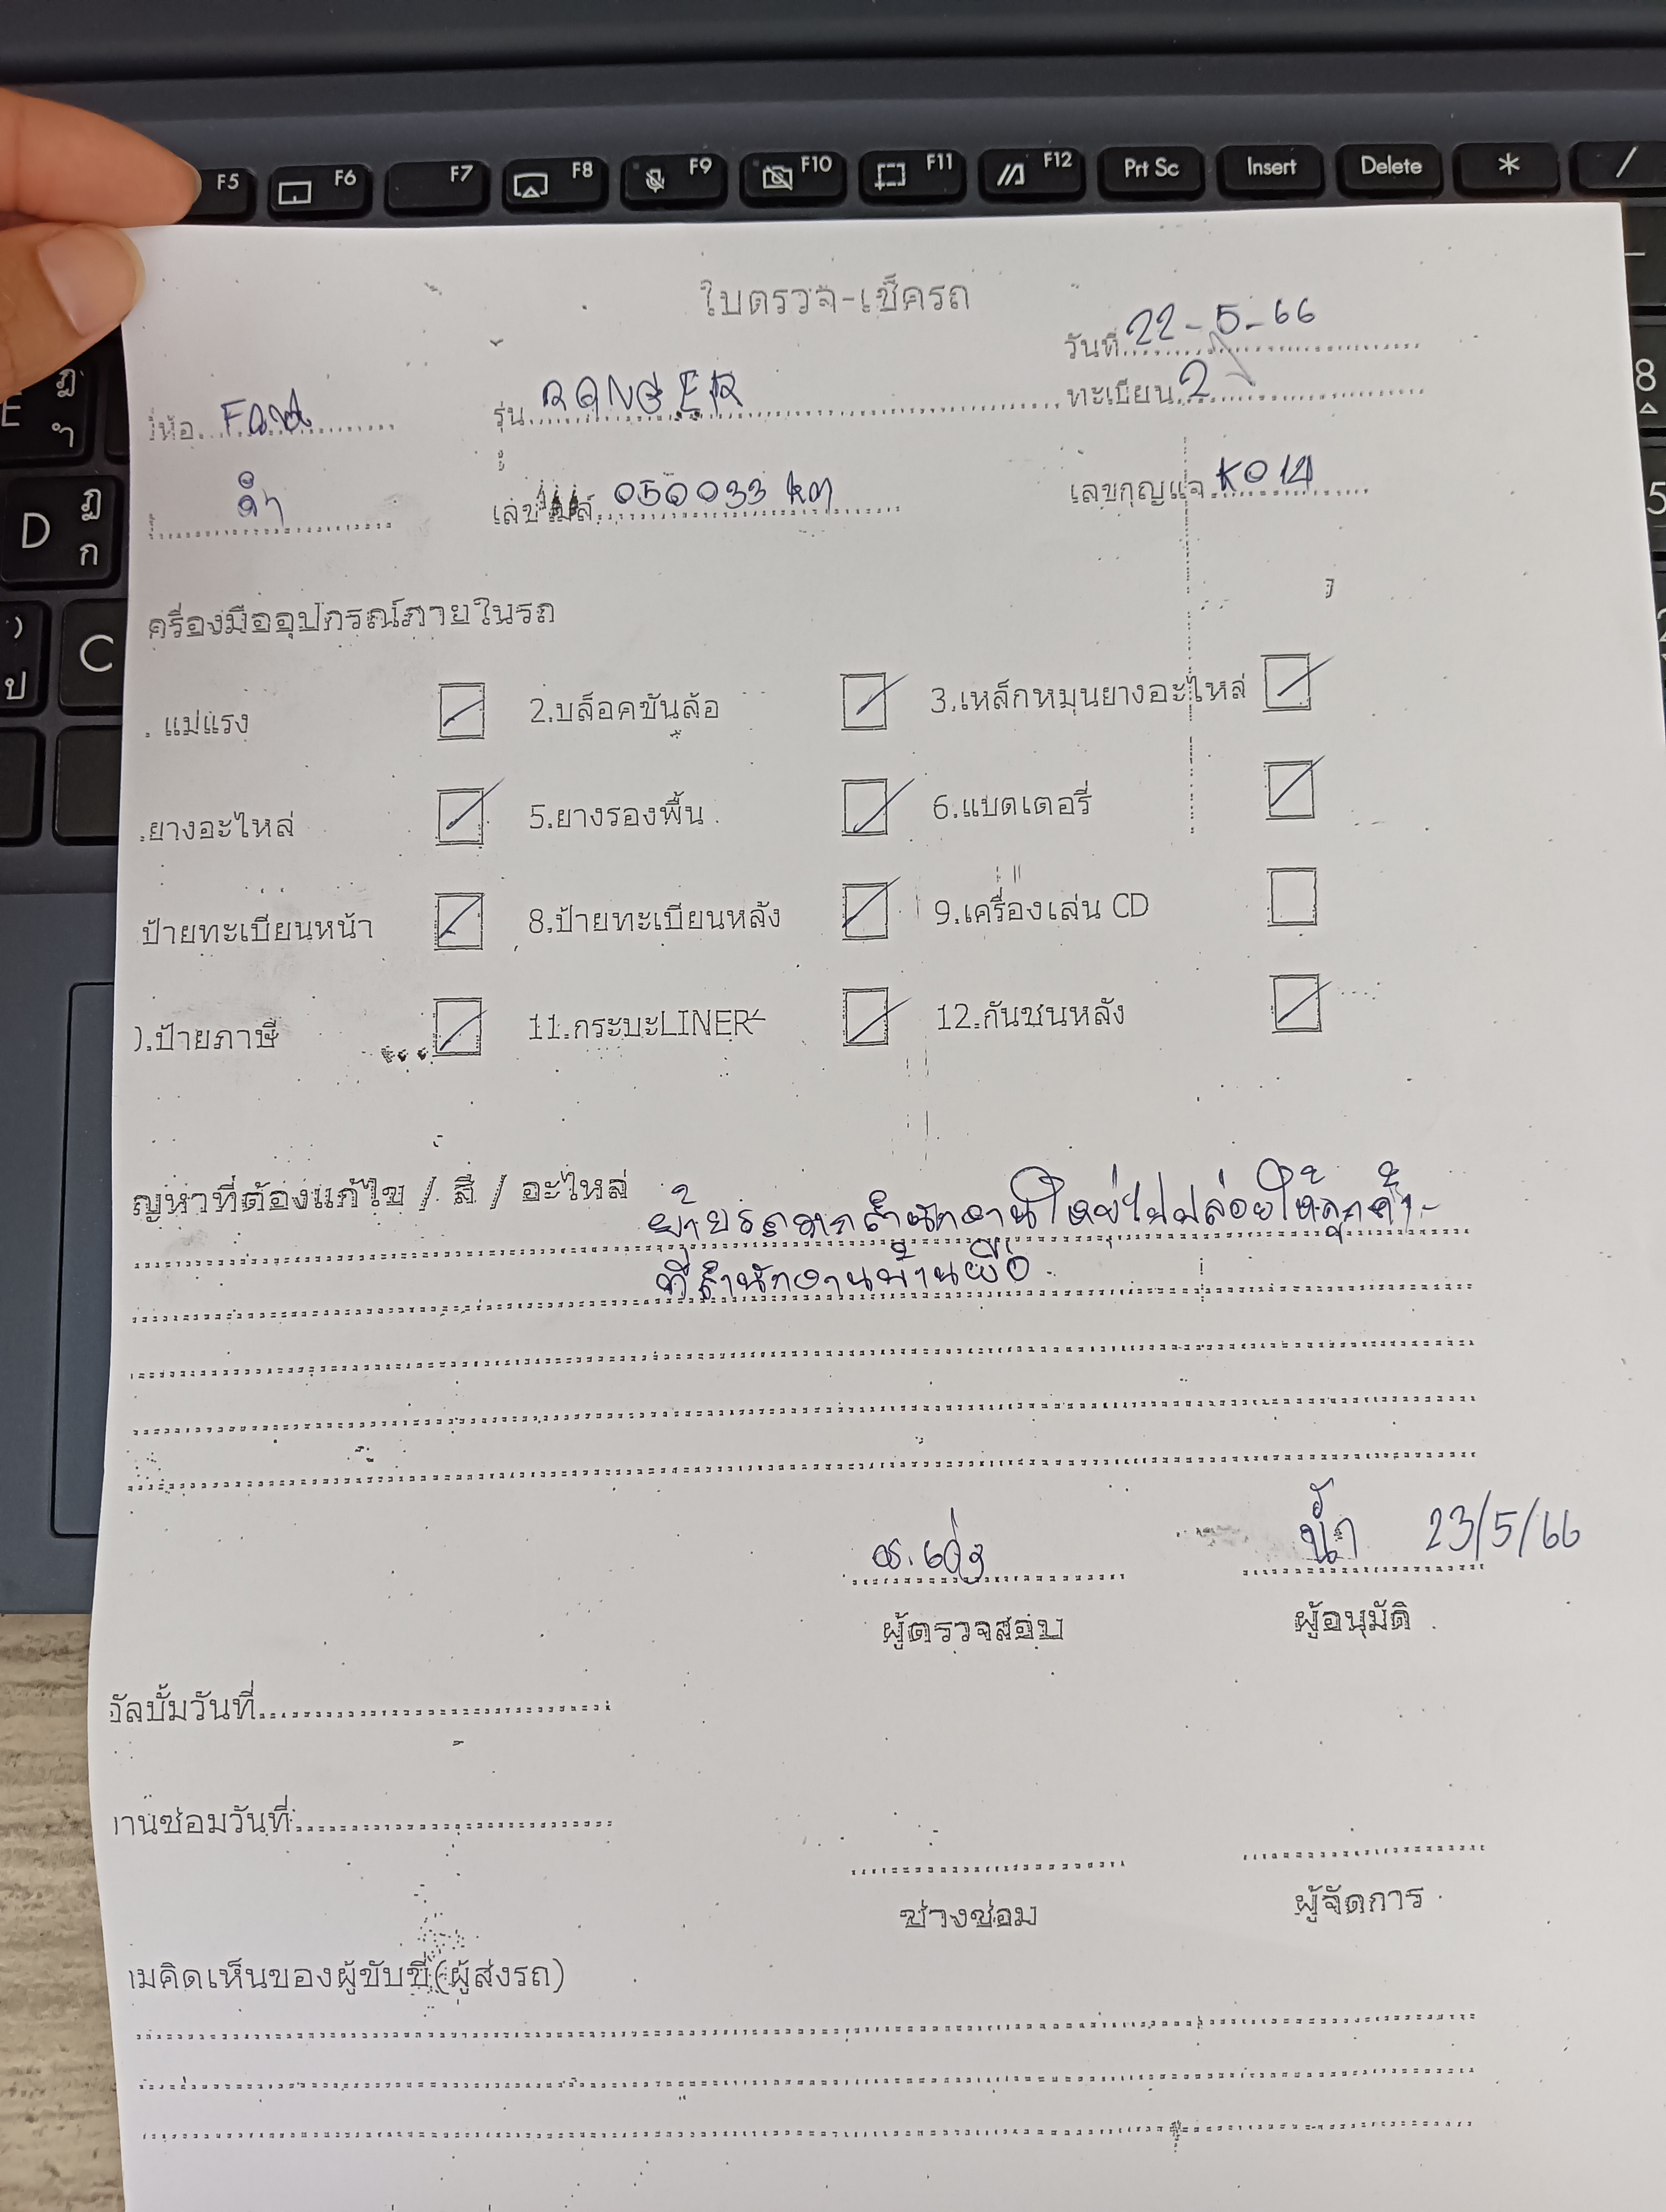 F5 F6 F7 F8 F9 F10 F11 F12 Prt Sc Insert Delete * /
ใบตรวจ-เช็ครถ
วันที่ 22-5-66
ห้อ Ford รุ่น RANGER ทะเบียน 2
ดำ เลขไมล์ 050033 km เลขกุญแจ K014
ครื่องมืออุปกรณ์ภายในรถ
. แม่แรง 2.บล็อคขันล้อ 3.เหล็กหมุนยางอะไหล่
.ยางอะไหล่ 5.ยางรองพื้น 6.แบตเตอรี่
ป้ายทะเบียนหน้า 8.ป้ายทะเบียนหลัง 9.เครื่องเล่น CD
).ป้ายภาษี 11.กระบะLINER 12.กันชนหลัง
ญหาที่ต้องแก้ไข / สี / อะไหล่ ย้ายรถจากสำนักงานใหญ่ไปปล่อยให้ลูกค้า-
ที่สำนักงานบ้านผือ.
23/5/66
ผู้ตรวจสอบ ผู้อนุมัติ
วัลบั้มวันที่
านซ่อมวันที่
ช่างซ่อม ผู้จัดการ
ามคิดเห็นของผู้ขับขี่(ผู้ส่งรถ)
D ฏ ก
C
ป
8
5